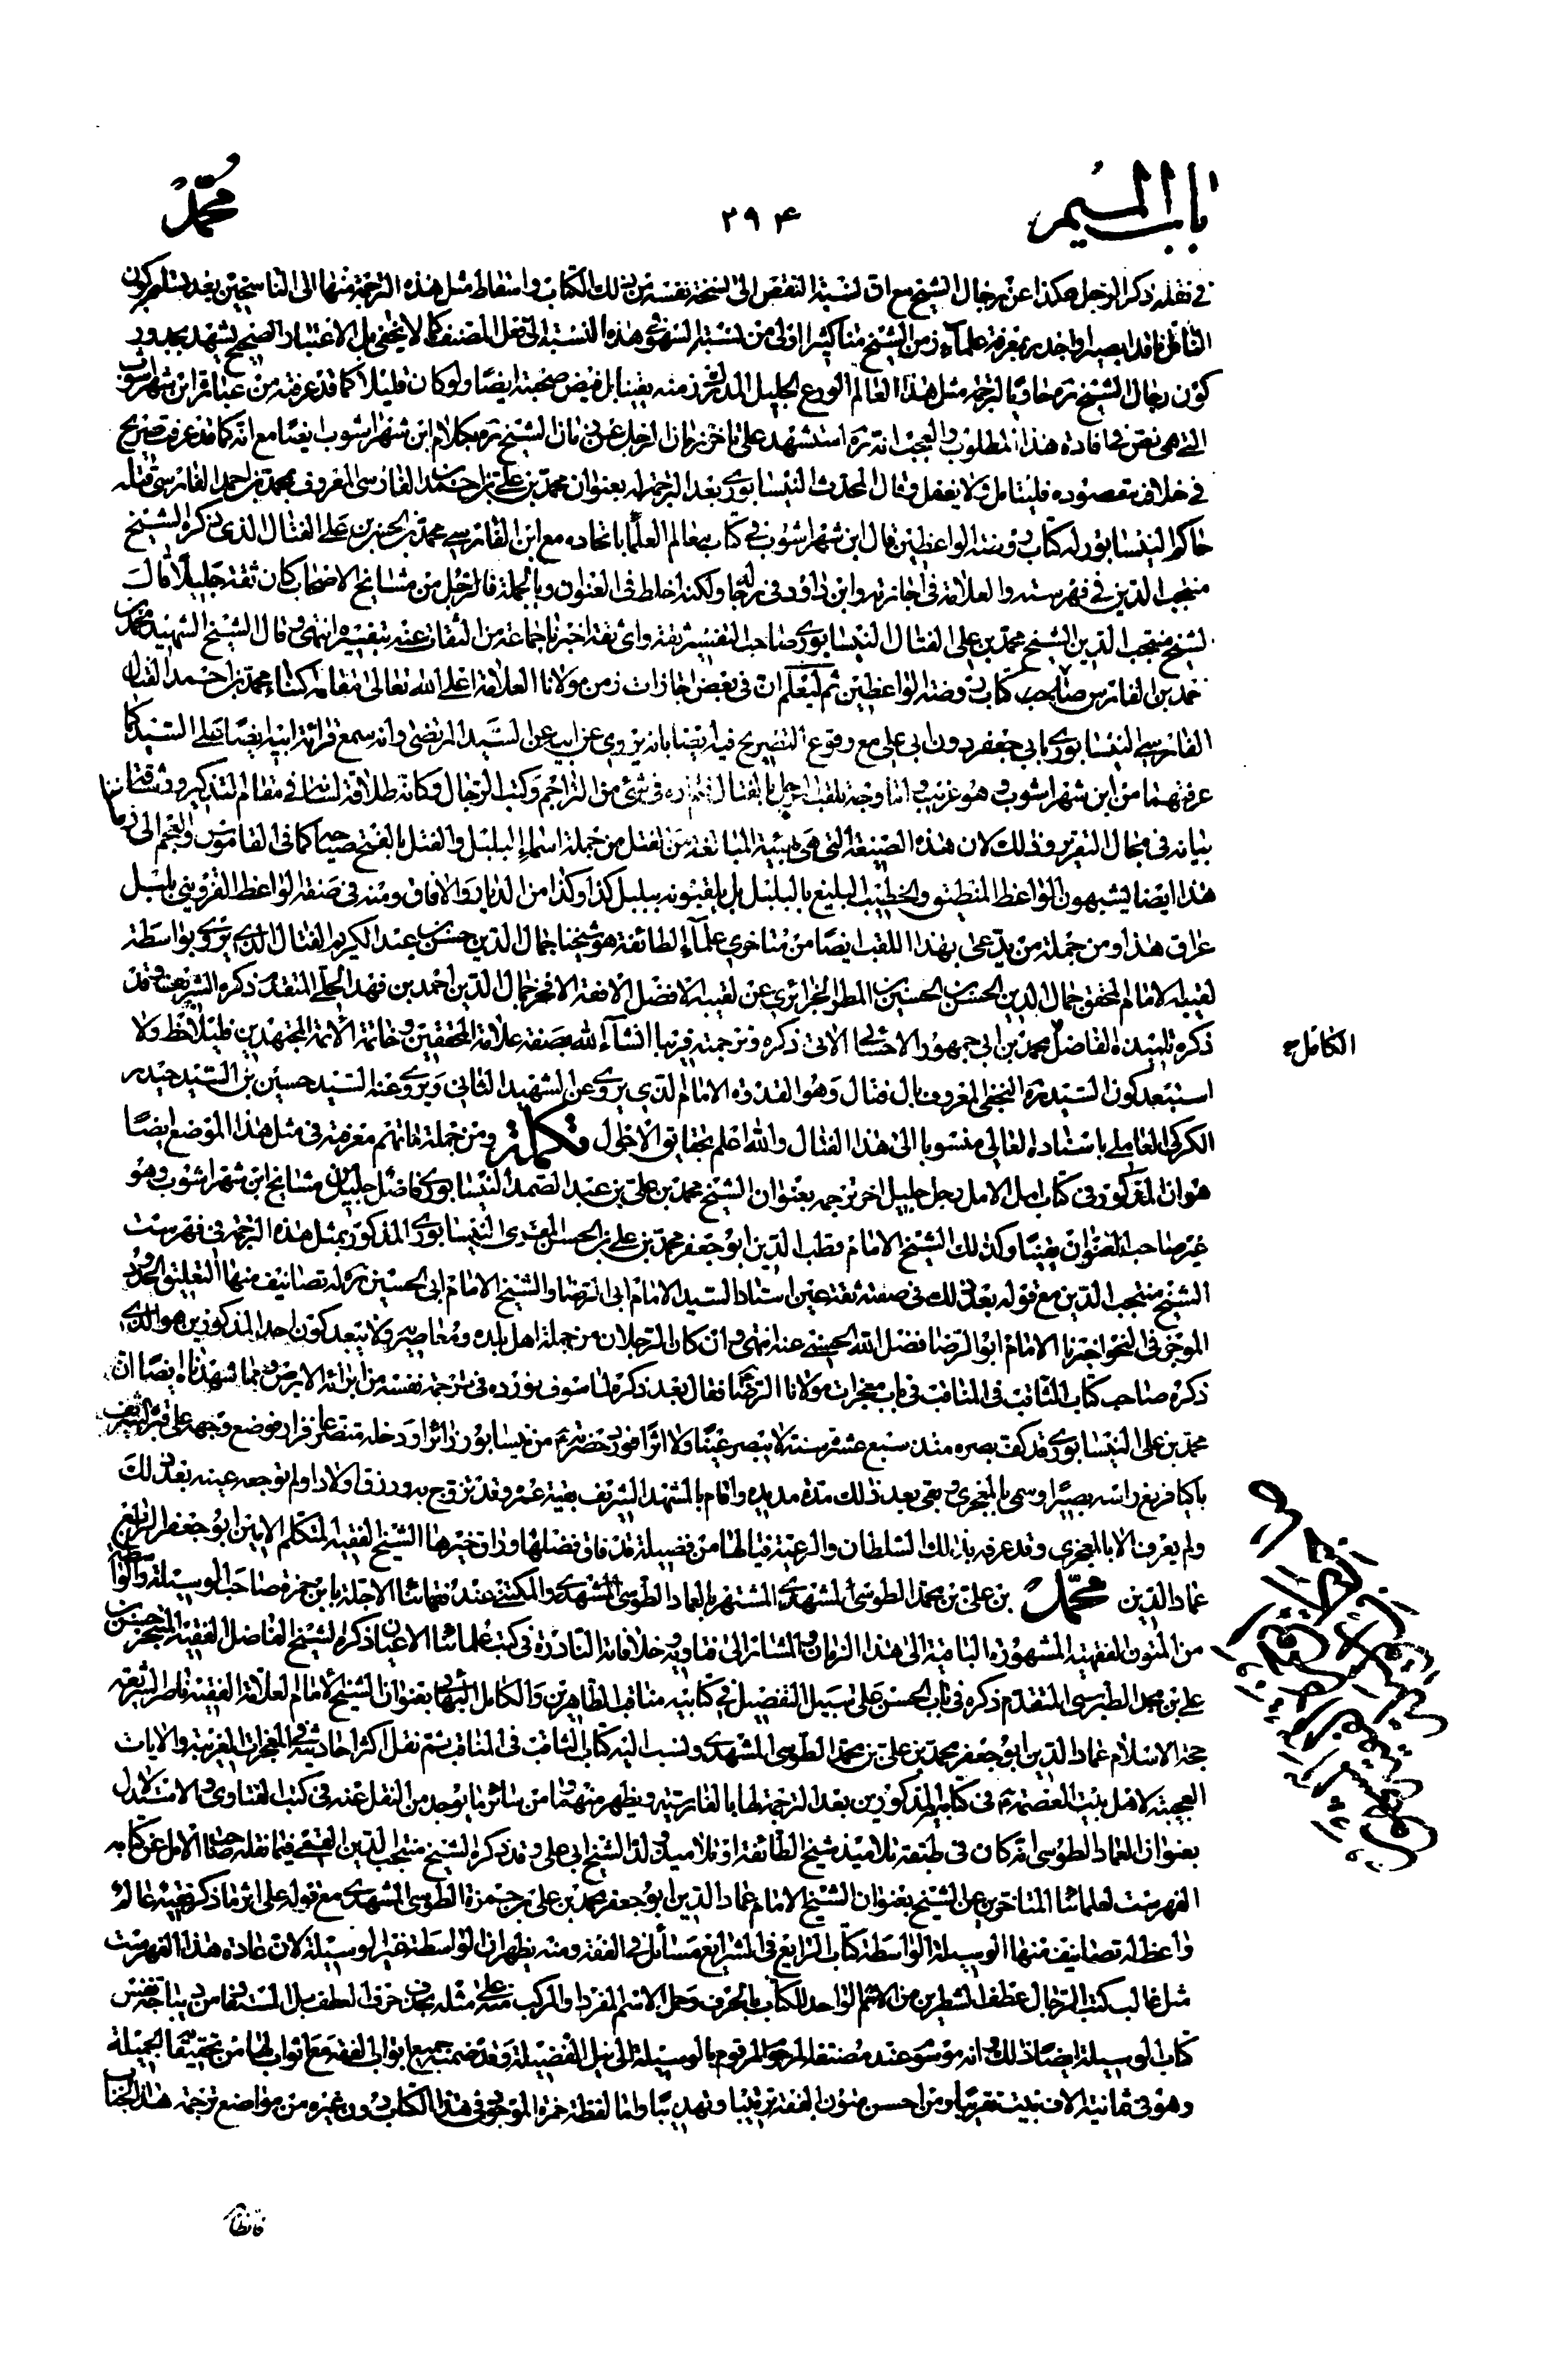 باب الميم
۳۹۴
محمد
في نقله ذكر الرجل هكذا عن رجال الشيخ مع ان نسبة النقص الى نسخة نفسه من ذلك الكتاب واسقاط مثل هذه الترجمة منها الى الناسخين بعد تسليم كون
الناقل ناقدا بصيرا واجدر بمعرفة علماء زمن الشيخ منا كثيرا اولى من نسبة السهو في هذه النسبة الى نقل المصنف كما لا يخفى بل الاعتبار الصحيح يشهد بجدور
كون رجال الشيخ ره حاويا لترجمة مثل هذا العالم الورع الجليل المدرك زمنه يقينا بل فيض صحبته ايضا ولو كان قليلا كما قد عرفته من عبائر ابن شهراشوب
التي هي نص في افادة هذا المطلوب والعجب انه ره استشهد على تاخر زمان الرجل عن زمان الشيخ ره بكلام ابن شهراشوب ايضا مع انه كما قد عرفت صريح
في خلاف مقصوده فليتامل ولا يغفل وقال المحدث النيسابوري بعد الترجمة له بعنوان محمد بن علي بن احمد الفارسي المعروف بمحمد بن احمد الفارسي قتله
حاكم النيسابور له كتاب روضة الواعظين قال ابن شهراشوب في كتاب معالم العلماء باتحاده مع ابن الفارسي محمد بن الحسن بن علي الفتال الذي ذكره الشيخ
منتجب الدين في فهرسته والعلامة في اجازته وابن داود في رجاله ولكنه اخلط في العنوان وبالجملة فالرجل من مشايخ الاصحاب كان ثقة جليلا قال
لشيخ منتجب الدين الشيخ محمد بن علي الفتال النيسابوري صاحب التفسير ثقة واي ثقة اخبرنا جماعة من الثقات عنه بتفسيره انتهى وقال الشيخ الشهيد محمد بن
احمد بن الفارس صاحب كتاب روضة الواعظين ثم ليعلم ان في بعض اجازات زمن مولانا العلامة اعلى الله تعالى مقامه كناء محمد بن احمد الفتال
الفارسي النيسابوري بابي جعفر دون ابي علي مع وقوع التصريح فيه ايضا بانه يروي عن ابيه عن السيد المرتضى وانه سمع قرائة ابيه ايضا على السيد كما
عرفتهما من ابن شهراشوب وهو غريب واما وجه تلقب الرجل بالفتال فلم اره في شئ من التراجم وكتب الرجال وكانه طلاقة لسانه في مقام التذكير ورشاقة
بيانه في مجال التقرير وذلك لان هذه الصيغة التي هي بهيئة المبالغة من الفتل من جملة اسماء البلبل والفتل بالفتح صياحه كما في القاموس والعجم الى زماننا
هذا ايضا يشبهون الواعظ المنطيق والخطيب البليغ بالبلبل بل يلقبونه ببلبل كذا وكذا من الديار والافاق ومنه في صفة الواعظ القزويني بلبل
عراق هذا ومن جملة من يدعى بهذا اللقب ايضا من متاخري علماء الطائفة هو شيخنا جمال الدين حسن بن عبد الكريم الفتال الذي يروي بواسطة
لقيه الامام المحقق جمال الدين الحسن بن الحسين بن المطر الجزائري عن لقيبه الافضل الافقه الافخر جمال الدين احمد بن فهد الحلي المتقدم ذكره الشريف وقد
ذكره تلميذه الفاضل محمد بن ابي جمهور الاحسائي الاتي ذكره وترجمته قريبا انشاء الله بصفة علامة المحققين وخاتمة الائمة المجتهدين فليلاحظ ولا
استبعد كون السيد شرف النجفي المعروف بال فتال وهو القدوة الامام الذي يروي عن الشهيد الثاني ويروي عنه السيد حسين بن السيد حيدر
الكركي العاملي باستناده العالي منسوبا الى هذا الفتال والله اعلم بحقايق الاحوال تكملة ومن جملة ما تتم معرفته في مثل هذا الموضع ايضا
هو ان المذكور في كتاب امل الامل رجل جليل اخر ترجمه بعنوان الشيخ محمد بن علي بن عبد الصمد النيسابوري فاضل جليل من مشايخ ابن شهراشوب وهو
غير صاحب العنوان يقينا وكذلك الشيخ الامام قطب الدين ابو جعفر محمد بن علي بن الحسن المقري النيسابوري المذكور بمثل هذه الترجمة في فهرست
الشيخ منتجب الدين مع قوله بعد ذلك في صفته ثقة عين استاد السيد الامام ابي الرضا والشيخ الامام ابي الحسين ره له تصانيف منها التعليق الحدود
الموجز في النحو اخبرنا الامام ابو الرضا فضل الله الحسني عنه انتهى وان كان الرجلان من جملة اهل بلده ومعاصريه ولا يبعد كون احد المذكورين هو الذي
ذكره صاحب كتاب الثاقب في المناقب في باب معجزات مولانا الرضا ع فقال بعد ذكره لما سوف نورده في ترجمة نفسه من ابرائه الابرص ومما شهدناه ايضا ان
محمد بن علي النيسابوري قد كف بصره منذ سبع عشرة سنة لا يبصر عينا ولا اثرا فورد حضرته ع من نيسابور زائرا ودخله متضرعا فوضع وجهه على قبره الشريف
باكيا فرفع راسه بصيرا وسمي بالمعجزي وبقي بعد ذلك مدة مديدة واقام بالمشهد الشريف بقية عمره وقد تزوج به ورزق اولادا ولم توجعه عينه بعد ذلك
ولم يعرف الا بالمعجزي وقد عرفه بذلك السلطان والرعية فيالها من فضيلة قد فاق فضلها وراق خبرها الشيخ الفقيه المتكلم الامين ابو جعفر الرابع
عماد الدين محمد بن علي بن محمد الطوسي المشهدي المشتهر بالعماد الطوسي المشهدي والمكتنى عند فقهائنا الاجلة بابن حمزة صاحب الوسيلة والواسطة
من المتون الفقهية المشهورة الباقية الى هذا الزمان والمشار الى فتاويه وخلافاته النادرة في كتب علمائنا الاعيان ذكره الشيخ الفاضل الفقيه المتبحر حسن بن
علي بن محمد الطبرسي المتقدم ذكره في باب الحسن على سبيل التفصيل في كتابيه مناقب الطاهرين والكامل البهائي بعنوان الشيخ الامام العلامة الفقيه ناصر الشريعة
حجة الاسلام عماد الدين ابو جعفر محمد بن علي بن محمد الطوسي المشهدي ونسب اليه كتاب الثاقب في المناقب ثم نقل اكثر احاديثه في المعجزات الغريبة والايات
العجيبة لاهل بيت العصمة ع في كتابيه المذكورين بعد الترجمة لها بالفارسية ويظهر منهما ومن سائر ما يوجد من النقل عنه في كتب الفتاوى والاستدلال
بعنوان العماد الطوسي انه كان في طبقة تلاميذ شيخ الطائفة او تلاميذ ولد الشيخ ابي علي وقد ذكره الشيخ منتجب الدين القمي فيما نقله صاحب الامل عن كتابه
الفهرست لعلمائنا المتاخرين عن الشيخ بعنوان الشيخ الامام عماد الدين ابو جعفر محمد بن علي بن حمزة الطوسي المشهدي مع قوله على اثر ما ذكر فقيه عالم
واعظ له تصانيف منها الوسيلة الواسطة كتاب الرايع في الشرايع مسائل في الفقه ومنه يظهر ان الواسطة غير الوسيلة لان عادة هذا الفهرست
مثل غالب كتب الرجال عطف الشطرين من الاسم الواحد للكتاب بالحرف وحمل الاسم المفرد والمركب منه على مثله بحذف حرف العطف بل المستفاد من ديباجة نفس
كتاب الوسيلة ايضا ذلك وانه موسوم عند مصنفه المرحوم المرقوم بالوسيلة الى نيل الفضيلة وقد ضمنه جميع ابواب الفقه مع ابواب لها من تحقيقاته الجميلة
وهو في ثمانية الاف بيت تقريبا ومن احسن متون الفقه ترتيبا وتهذيبا واما لفظة حمزة الموجود في هذا الكتاب دون غيره من مواضع ترجمة هذا الجناب
الكامل
فانظا